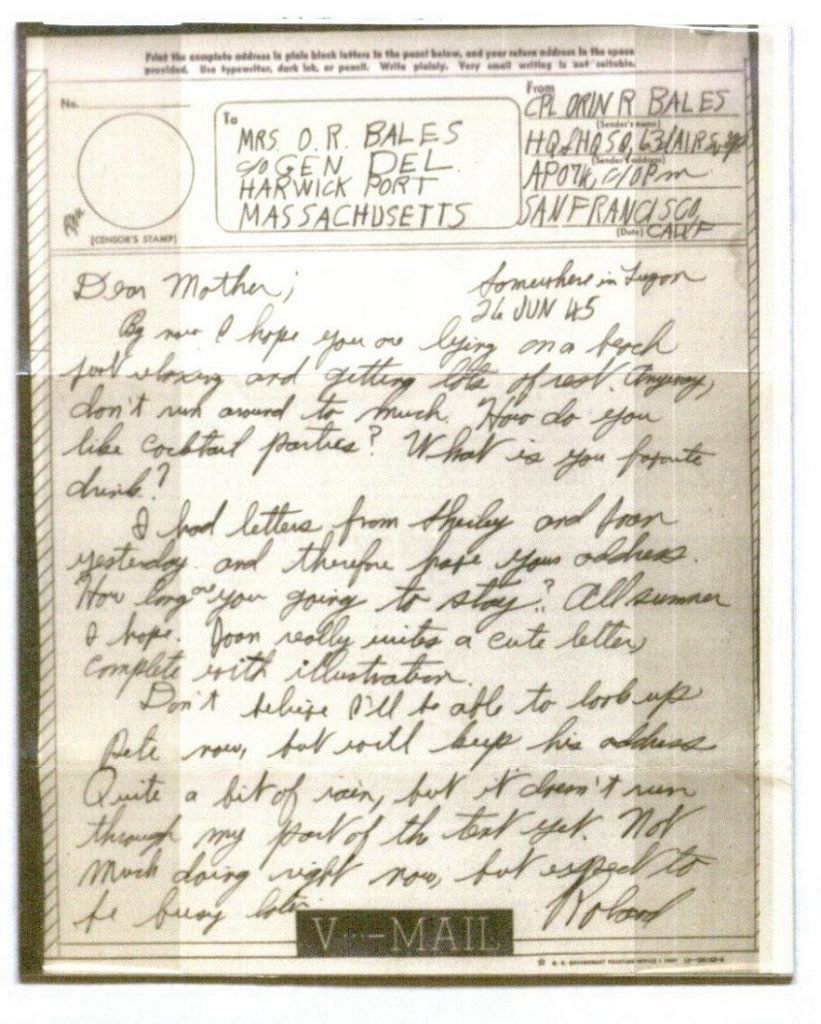 Print the complete address in plain block letters in the panel below, and your return address in the space
provided. Use typewriter, dark ink, or pencil. Write plainly. Very small writing is not suitable.
No.
To
MRS. O. R. BALES
c/o GEN DEL.
HARWICK PORT
MASSACHUSETTS
From
CPL ORIN R BALES
(Sender's name)
HQ & HQ SQ, 63d AIR
(Sender's address)
APO 74, c/o P m
SAN FRANCISCO,
(Date) CALIF
[CENSOR'S STAMP]
Dear Mother;
Somewhere in Luzon
26 JUN 45
By now I hope you are lying on a beach
just relaxing and getting lots of rest. Anyway,
don't run around to much. How do you
like cocktail parties? What is you favorite
drink?
I had letters from Shirley and Joan
yesterday and therefore have your address.
How long are you going to stay? All summer
I hope. Joan really writes a cute letter,
complete with illustration.
Don't believe I'll be able to look up
Pete now, but will keep his address
Quite a bit of rain, but it doesn't run
through my part of th tent yet. Not
much doing right now, but expect to
be busy later
Roland
V···—MAIL
U. S. GOVERNMENT PRINTING OFFICE